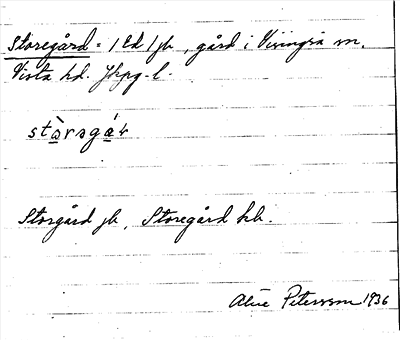 Storegård = 1 Ed 1 jb, gård i Visingsö sn.
Vista hd. Jkpg. l.
stòragá r
Storgård jb, Storegård kb.
Aline Petersson 1936